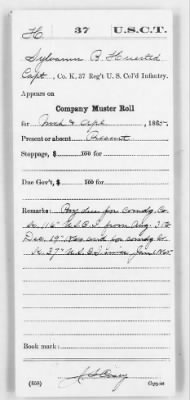 H | 37 | U.S.C.T.
Sylvanus B. Husted
Capt., Co. K, 37 Reg't U. S. Col'd Infantry.
Appears on
Company Muster Roll
for Mch & Apl, 1865.
Present or absent Present
Stoppage, $ 100 for
Due Gov't, $ 100 for
Remarks: Pay due for comdg Co.
116" U.S.C.T. from Aug. 3 to
Dec. 19"
37" U.S.C.T. since Jan
Book mark:
(358)
Copyist.